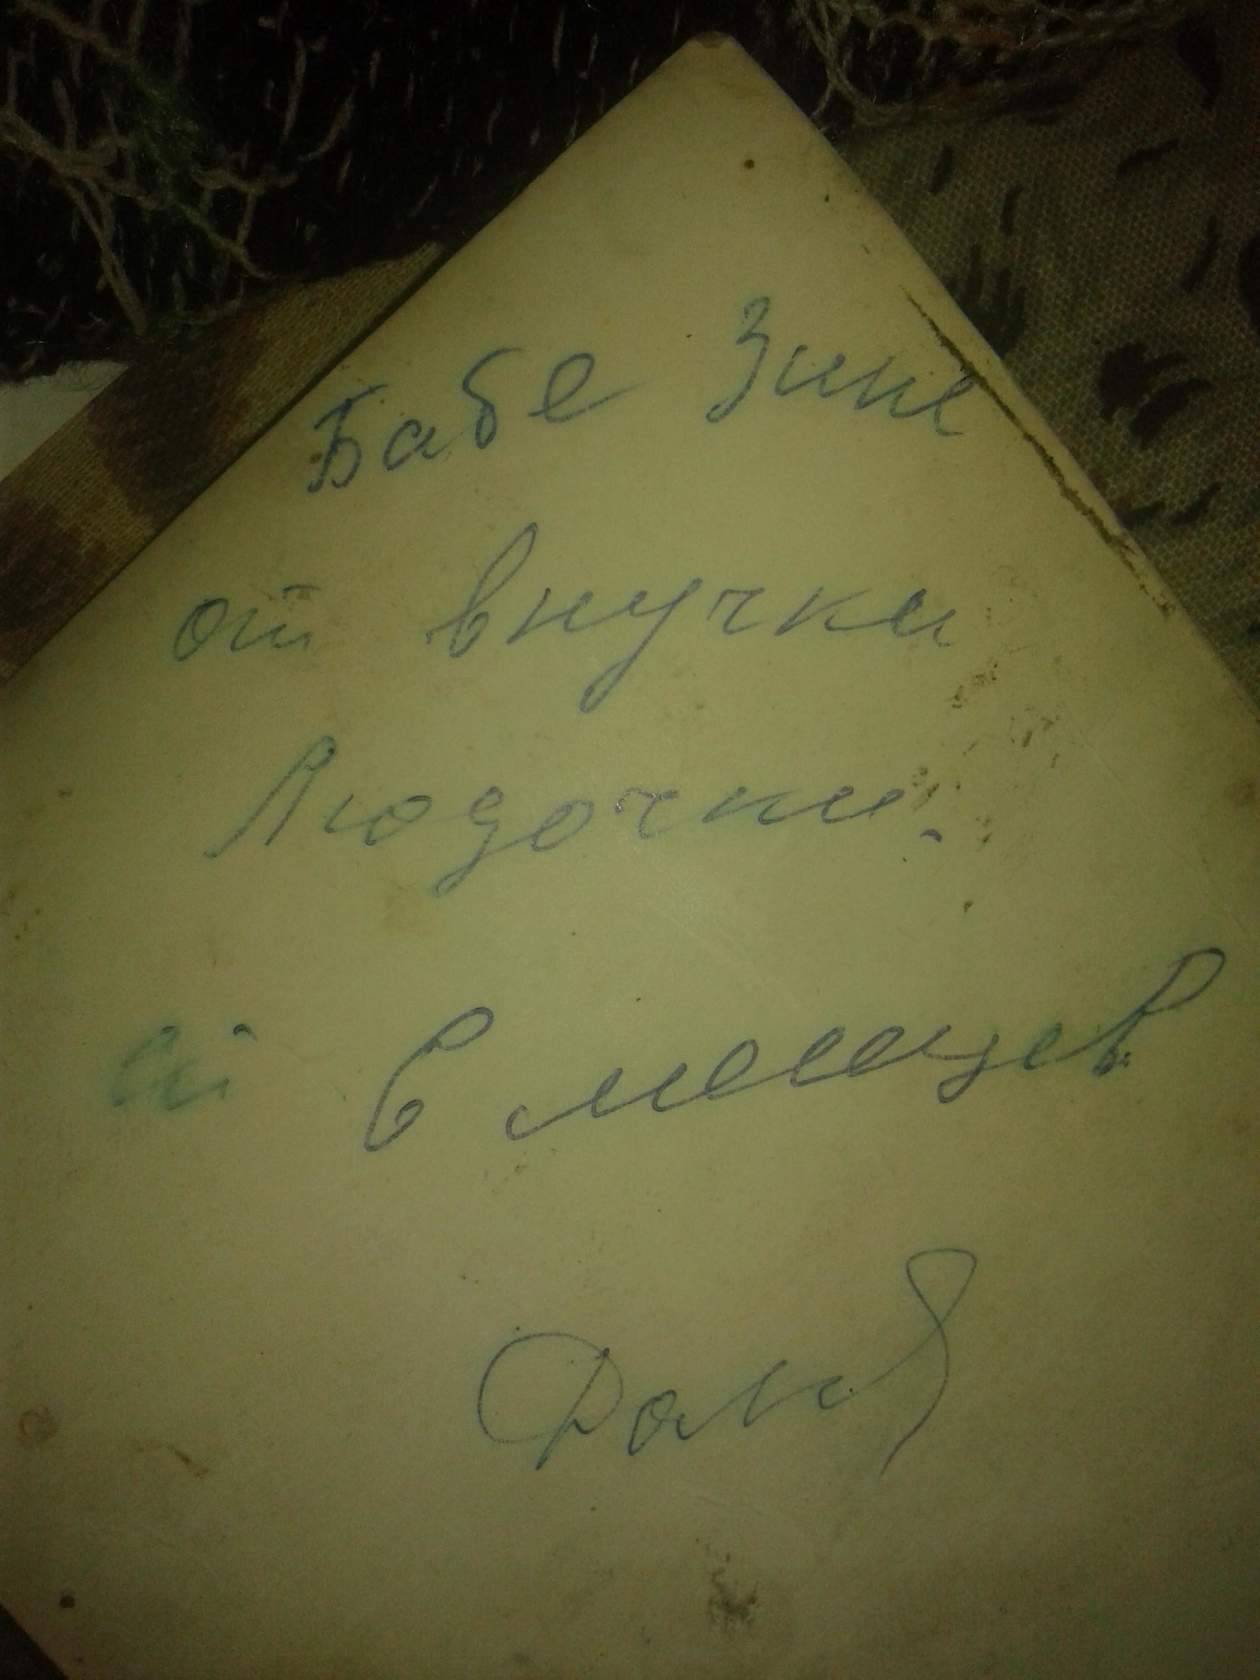 Бабе Зине
от внучки
Людочки.
ей 6 месяцев